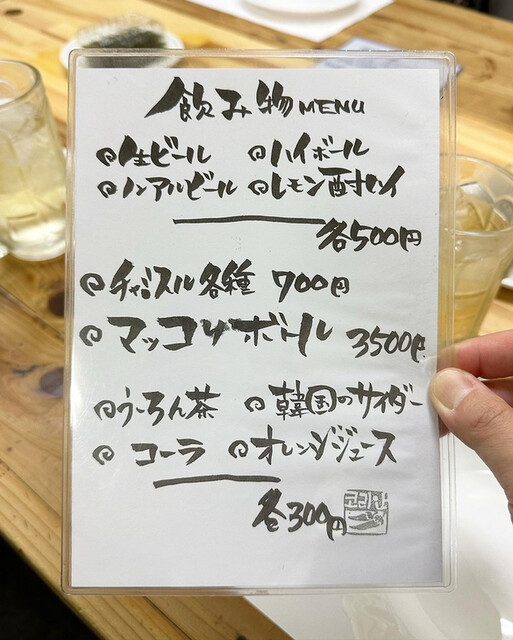 飲み物 MENU
生ビール ハイボール
ノンアルビール レモン酎ハイ
各500円
チャミスル各種 700円
マッコリボトル 3500円
うーろん茶 韓国のサイダー
コーラ オレンジジュース
各300円